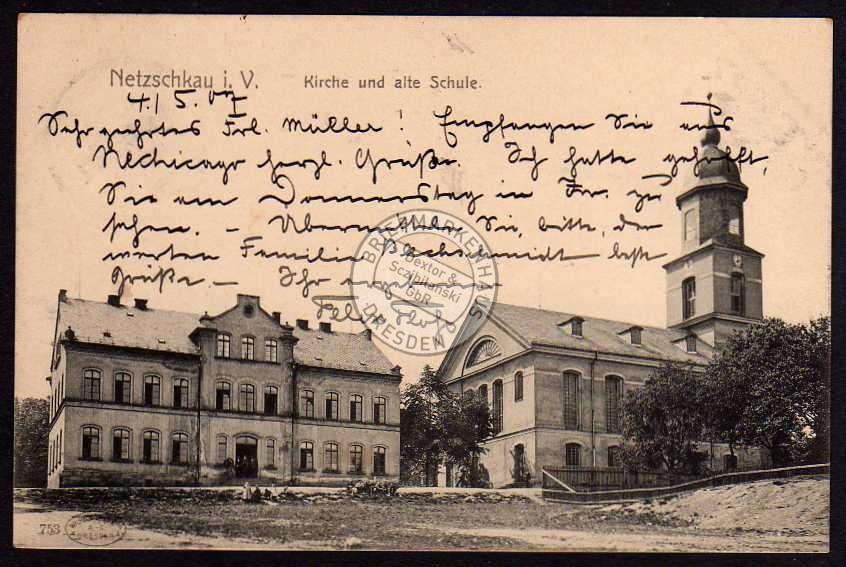 Netzschkau i. V. Kirche und alte Schule.
4./5. 07
Sehr geehrtes Frl. Müller! Empfangen Sie aus
herzl. Grüße. Ich hatte gehofft,
Sie am Donnerstag in Fr. zu
sehen. – Übermitteln Sie, bitte, der
werten Familie beste
Grüße – Ihr
BRIEFMARKENHAUS
Bextor &
Sczibilanski
GbR
DRESDEN
753